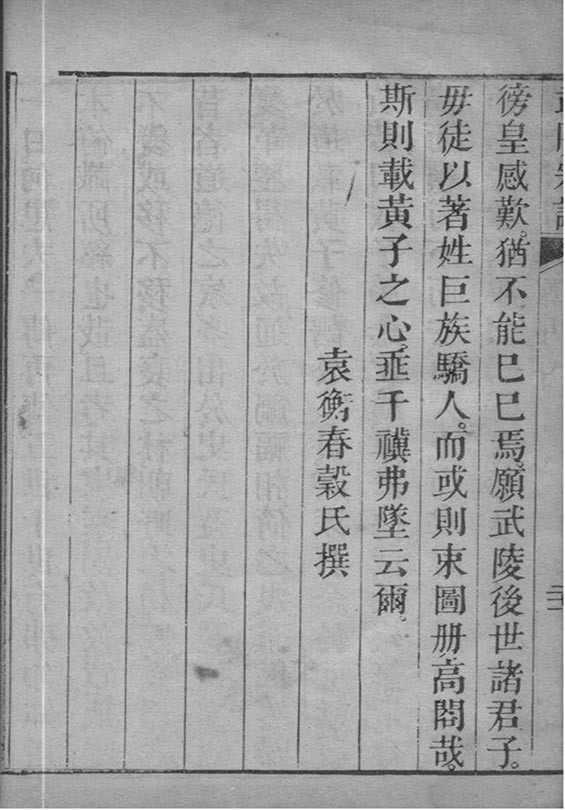 徬皇感歎。猶不能已已焉。願武陵後世諸君子。
毋徒以著姓巨族驕人。而或則束圖册高閣哉。
斯則載黃子之心。垂千禩弗墜云爾。
袁衡春穀氏撰